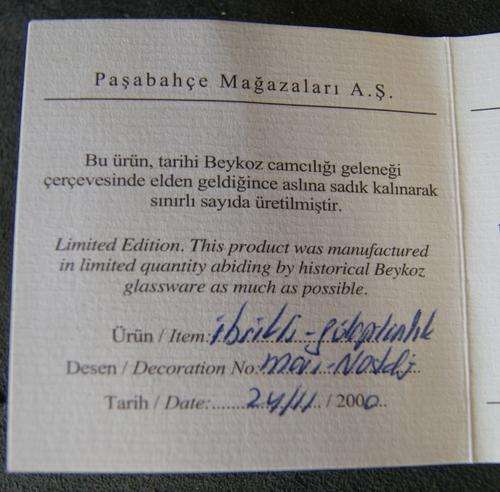 Paşabahçe Mağazaları A.Ş.
Bu ürün, tarihi Beykoz camcılığı geleneği
çerçevesinde elden geldiğince aslına sadık kalınarak
sınırlı sayıda üretilmiştir.
Limited Edition. This product was manufactured
in limited quantity abiding by historical Beykoz
glassware as much as possible.
Ürün / Item: ibrikli-gülaptanlık
Desen / Decoration No: mavi-
Tarih / Date:.......24/11./ 2000..